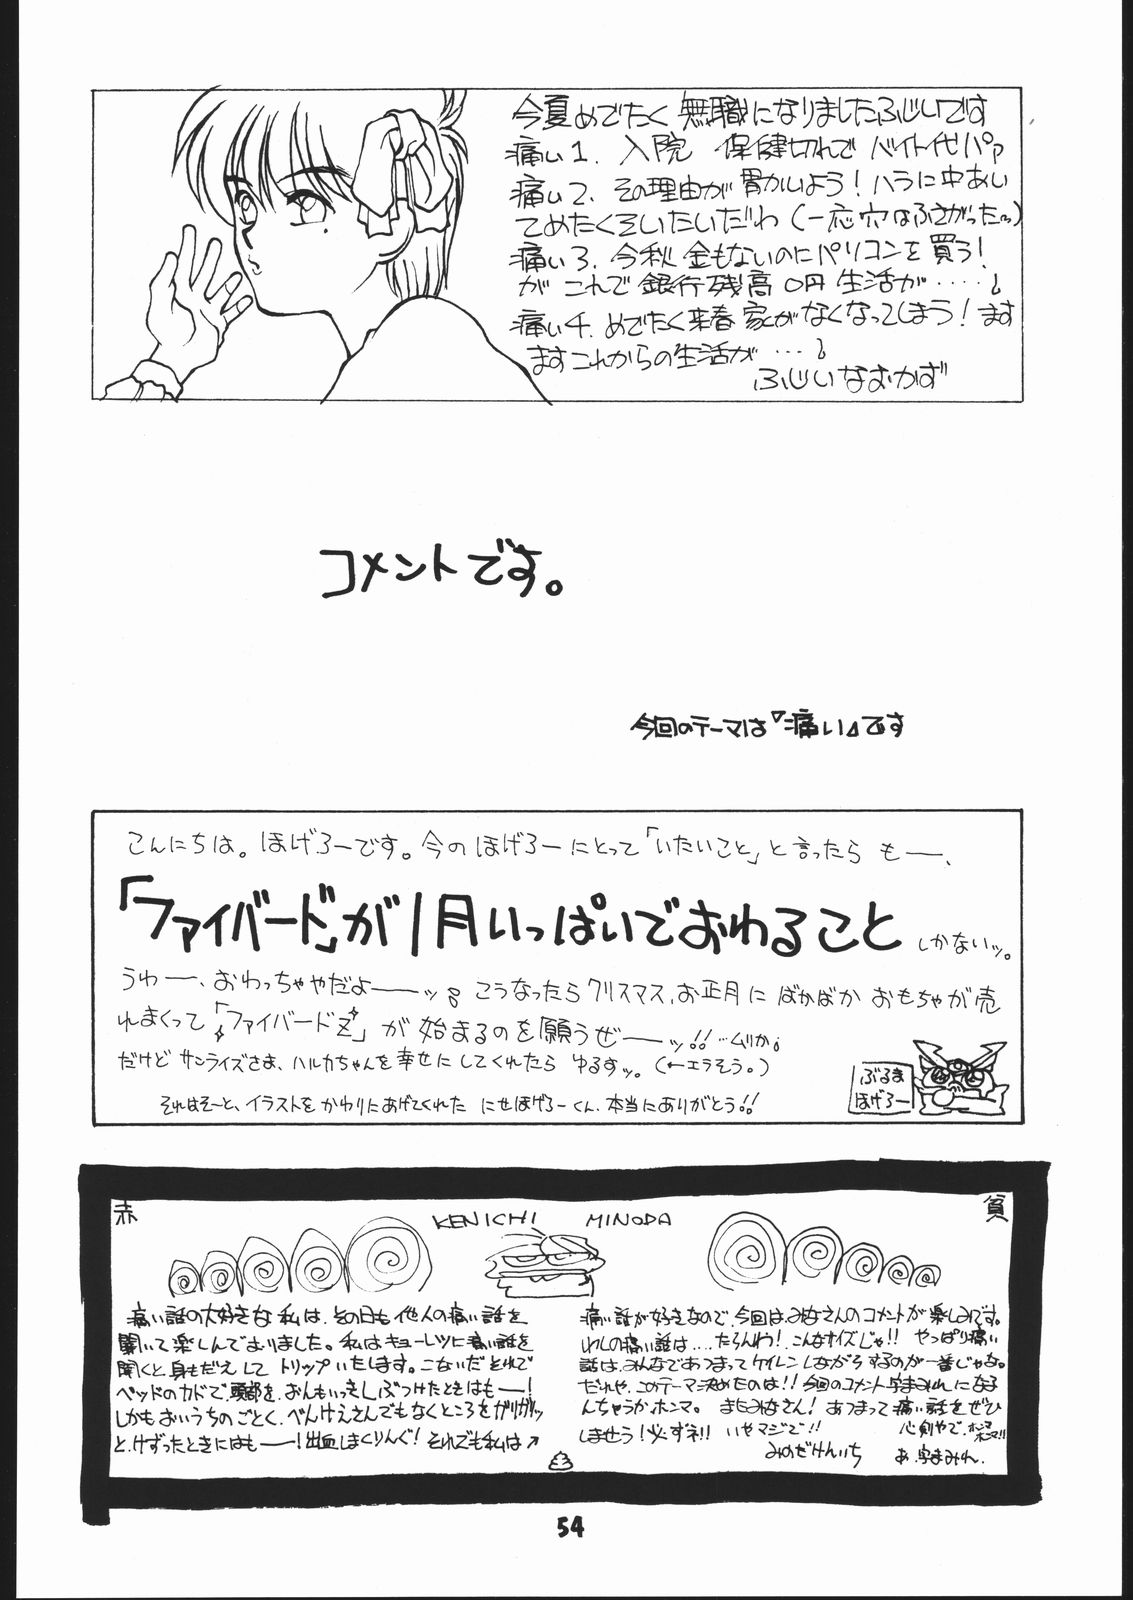 今夏めでたく無職になりましたふじいです
痛い1. 入院 保健切れで バイト代パァ
痛い2. その理由が胃かいよう!ハラに中あい
てめたくそいたいだわ(一応穴はふさがった〜)
痛い3. 今秋金もないのにパソコンを買う!
が これで銀行残高0円 生活が‥‥‥
痛い4. めでたく来春家がなくなってしまう!ます
ますこれからの生活が ‥‥
ふじいなおかず
コメントです。
今回のテーマは『痛い』です
こんにちは。ほげろーです。今のほげろーにとって「いたいこと」と言ったら もー、
「ファイバード」が1月いっぱいでおわること しかないッ。
うわー、おわっちゃやだよーーッ。こうなったらクリスマス、お正月にばかばかおもちゃが売
れまくって「ファイバードZ」が始まるのを願うぜーーッ!! …ムリか。
だけどサンライズさま、ハルカちゃんを幸せにしてくれたら ゆるすッ。(←エラそう。)
それはそーと、イラストをかわりにあげてくれた にせほげろーくん、本当にありがとう!!
ぶるま
ほげろー
赤
KENICHI MINODA
貧
痛い話の大好きな私は、その日も他人の痛い話を
聞いて楽しんでおりました。私はキョーレツに痛い話を
聞くと身もだえして トリップいたします。こないだそれで
ベッドのカドで、頭部を、おんもいっきしぶつけたときはもー!
しかもおいうちのごとく、べんけえさんでもなくところをガリガリッ
と、けずったときにはもー!出血しまくりんぐ! それでも私は↗
痛い話が好きなので、今回はみなさんのコメントが楽しみです。
わしの痛い話は‥‥たらんわ!こんなサイズじゃ!! やっぱり痛い
話は、みんなであつまってケイレンしながらするのが一番じゃな。
だれや、このテーマ決めたのは!!今回のコメント字まみれになる
んちゃうか、ホンマ。 またみなさん! あつまって痛い話をぜひ
しませう!必ずネ!! いやマジで!! 心剣やで、ホンマホンマ!!
みのだけんいち あ、字まみれ、
54